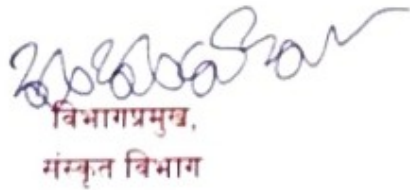 विभागप्रमुख,
संस्कृत विभाग